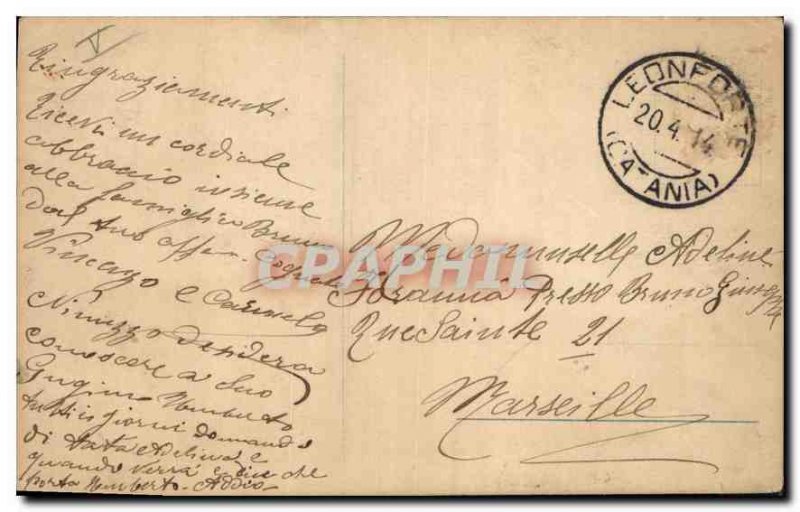 Ringraziamenti
Ricevi un cordiale
abbraccio insieme
alla famiglia Bruno
dal tuo aff.
Vincenzo e Carmelo
Ninuzzo desidera
conoscere a suo
Gugino Umberto
tutti i giorni domanda
di tata Adelina e
quando verrà e dice che
porta Umberto - Addio -
LEONFORTE
20.4.14
(CATANIA)
Mademoiselle Adelina
Presso Bruno
Rue Sainte 21
Marseille
CPARAMA
CPAPHIL